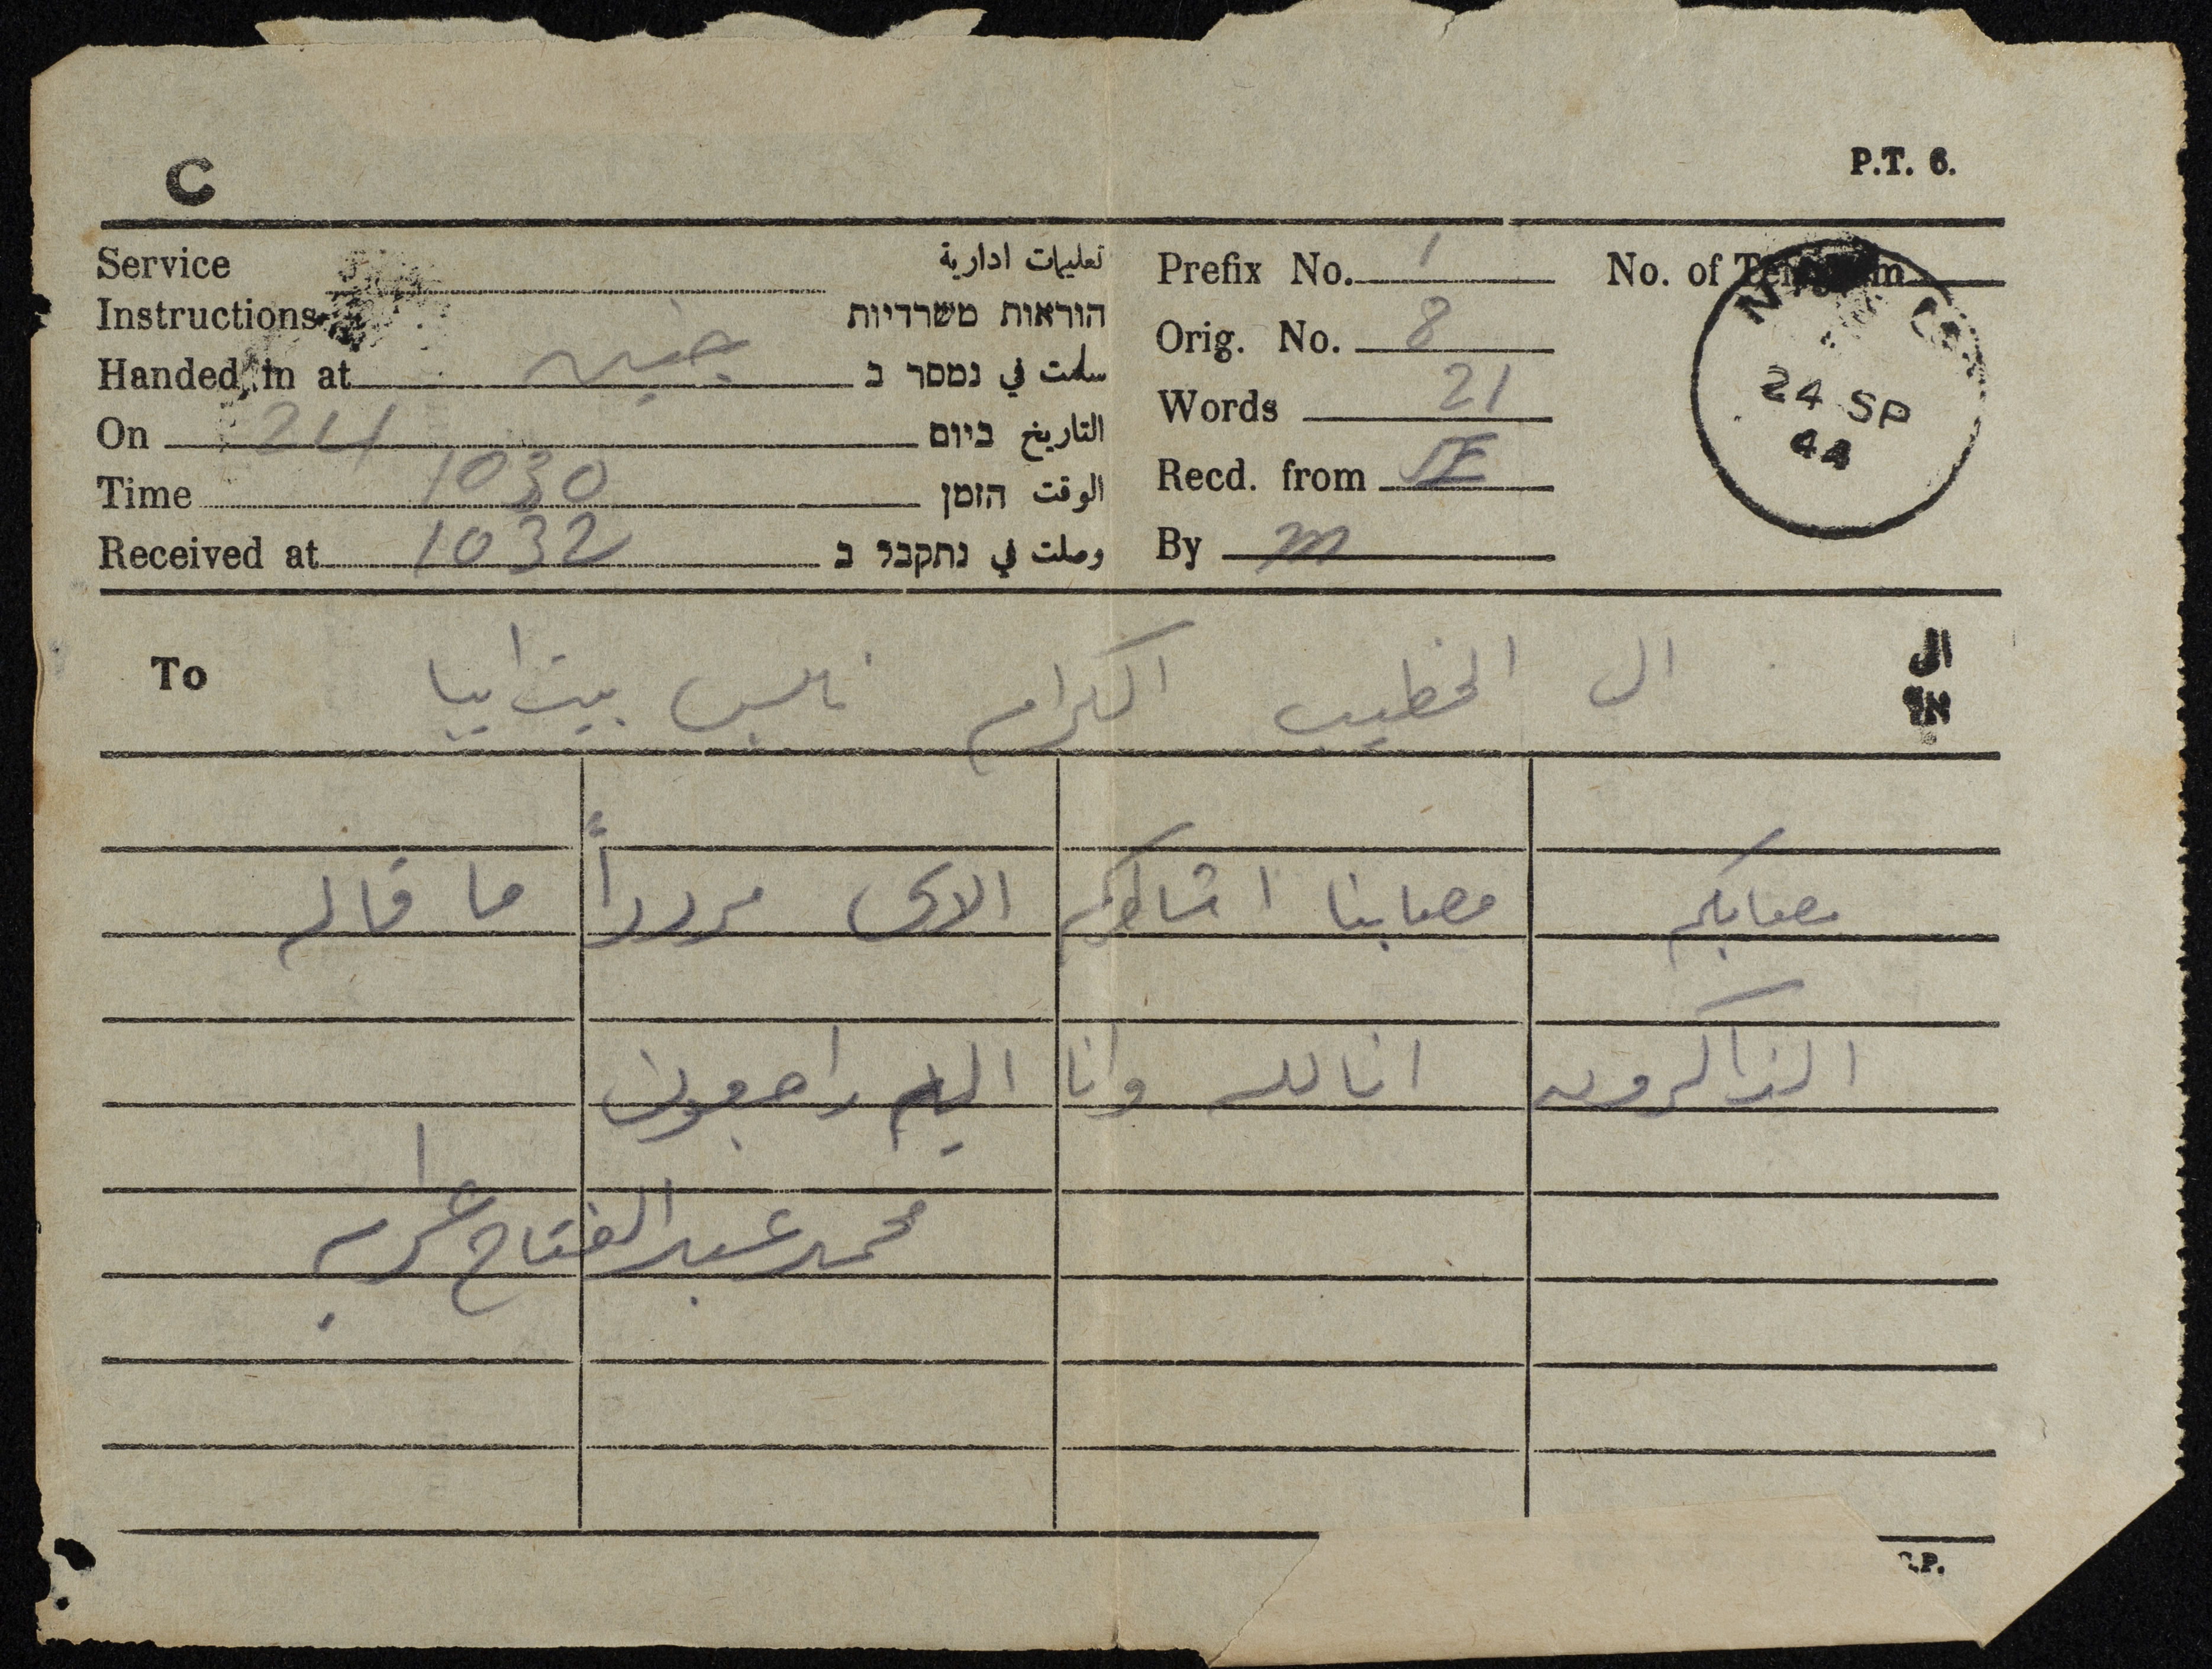 C
P.T. 6.
Service Instructions تعليمات ادارية
הוראות משרדיות
Handed in at جنين سلمت في נמסר ב
On 24 التاريخ ביום
Time 1030 الوقت הזמן
Received at 1032 وصلت في נתקבל ב
Prefix No. 1 No. of Telegram
Orig. No. 8
Words 21
Recd. from JE
By m
24 SP
44
To ال الخطيب الكرام نابلس بيت ايبا ال
אל
مصابكم مصابنا اشاطركم الاسى مرددا ً ما قاله
الذاكرون انا لله وانا اليه راجعون
محمد عبد الفتاح